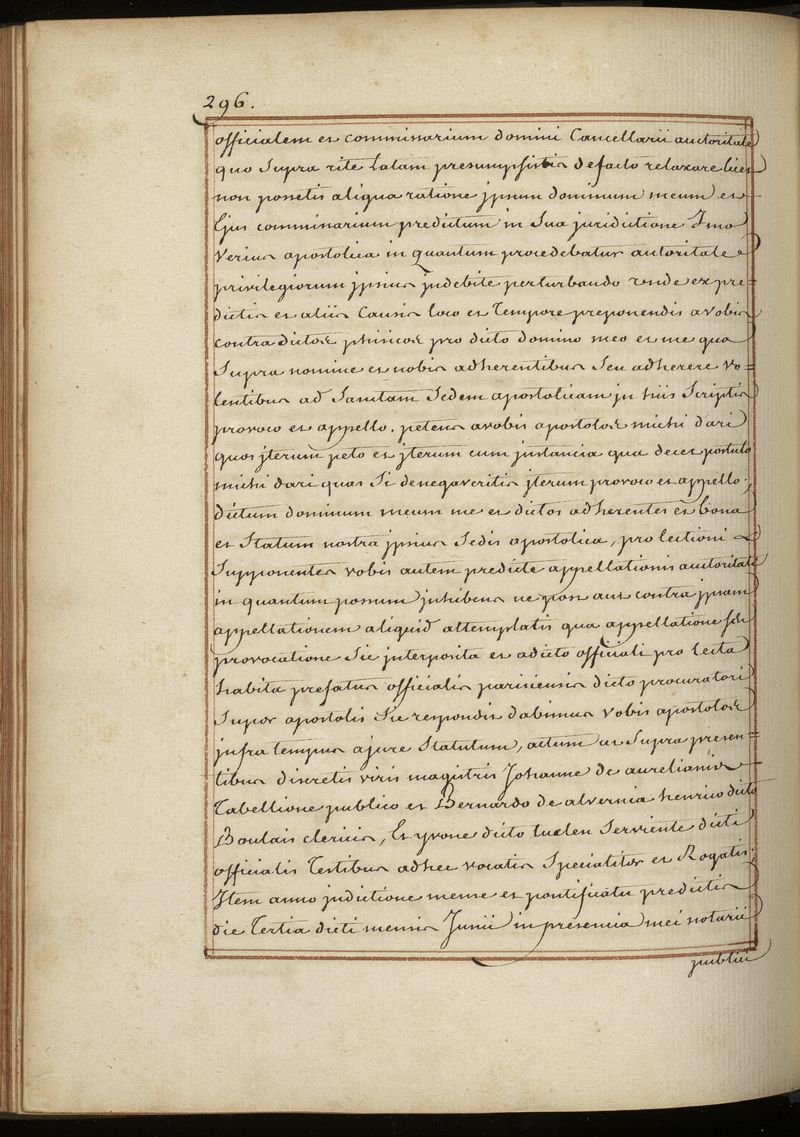 296.
officialem et comminarium domini Cancellarii auctoritate
quo Supra rite latam presumpsistis de facto relaxare licet
non possetis aliqua ratione jpsum dominum meum et
Ejus comminarium predictum in Sua juridictione Imo
Verius apostolica in quantum procedebatur autoritate
privilegiorum jpsius jndebite perturbando unde ex pre=
dictis et aliis Causis loco et Tempore preponendis a vobis
contra dictos phisicos pro dicto domino meo et me quo
Supra nomine et nobis adherentibus Seu adherere vo=
lentibus ad Sanctam Sedem apostolicam jn hiis Scriptis
provoco et appello. petens a vobis apostolos michi dari
quos jterum peto et jterum cum jnstancia qua decet postulo
michi dari quos Si denegaveritis jterum provoco et appello;
dictum dominum meum me et dictos adherentes et bona
et Statum nostra jpsius Sedis apostolica, protectioni
Supponentes vobis autem predicte appellationis auctoritate
in quantum possum jnhibens ne post aut contra jpsam
appellationem aliquid attemptatis qua appellatione Seu
provocatione Sic jnterposita et a dicto officiali pro lecta
habita prefatus officialis parisiensis dicto procuratori
Super apostolis Sic respondit dabimus vobis apostolos
jnfra tempus a jure Statutum, actum ut Supra presen=
tibus discretis viris magistris Johanne de aurelianis
Tabellione publico et Bernardo de alvernia henrico dicto
Boulais clericis, Et yvone dicto luelen Serviente dicti
officialis Testibus ad hec vocatis Specialiter et Rogatis.
Item anno jndictione mense et pontificatu predictis
die Tertia dicti mensis Junii in presencia mei notarii
publici